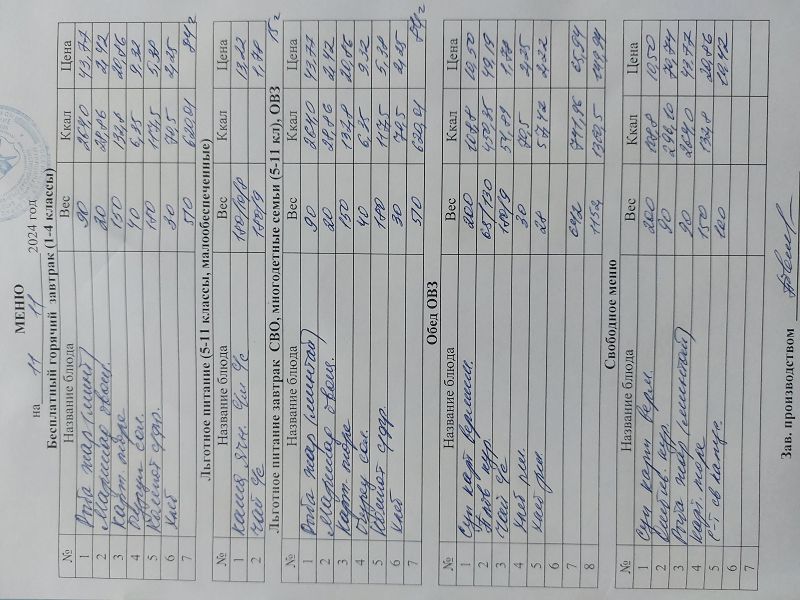 МЕНЮ
на 11 11 2024 год
Бесплатный горячий завтрак (1-4 классы)
№ Название блюда Вес Ккал Цена
1 Рыба жар (минт) 90 264,0 43,77
2 Маринад овощ. 20 28,86 2,42
3 Карт. пюре 150 132,8 20,86
4 Огурцы сол. 40 6,35 9,32
5 Компот сфр. 180 117,5 5,38
6 Хлеб 30 70,5 2,25
7 510 620,01 84г
Льготное питание (5-11 классы, малообеспеченные)
№ Название блюда Вес Ккал Цена
1 каша ячн. 13,22
2 чай с/с 180/9 1,78
15г
Льготное питание завтрак СВО, многодетные семьи (5-11 кл), ОВЗ
№ Название блюда Вес Ккал Цена
1 Рыба жар (минтай) 90 264,0 43,77
2 Маринад овощ. 20 28,86 2,42
3 Карт. пюре 150 132,8 20,86
4 Огурц сол. 40 6,35 9,32
5 Компот сфр. 180 117,5 5,38
6 Хлеб 30 70,5 2,25
7 510 620,01 84г
Обед ОВЗ
№ Название блюда Вес Ккал Цена
1 Суп карт вермиш. 200 108,8 10,50
2 Плов кур. 65/130 49,19
3 Чай с/с 180/9 1,78
4 Хлеб пш. 30 70,5 2,25
5 Хлеб рж. 28 57,12 2,22
6
7 642 741,96 65,94
8 1154
Свободное меню
№ Название блюда Вес Ккал Цена
1 Суп карт верм. 200 108,8 10,50
2 кур. 90
3 Рыба жар (минтай) 90 264,0 43,77
4 карт. пюре 150 132,8 20,86
5 с-т св капус 100 19,42
6
Зав. производством